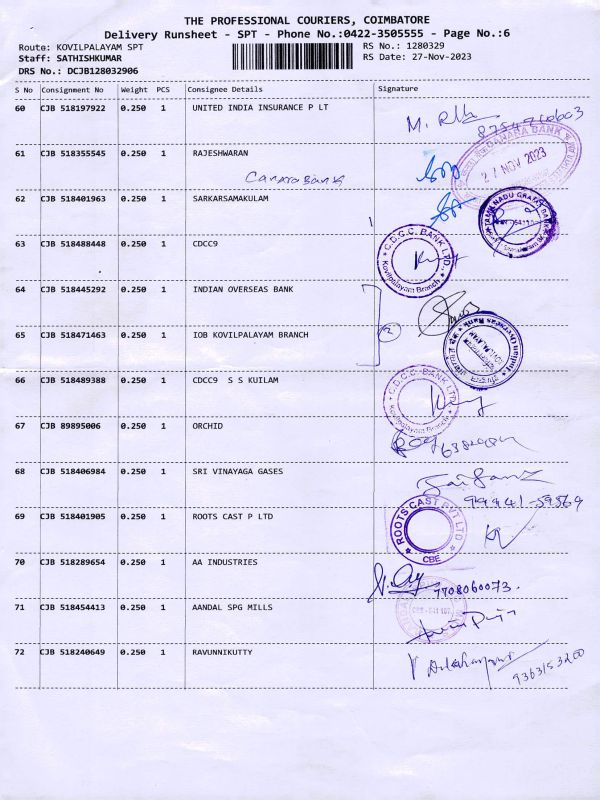 THE PROFESSIONAL COURIERS, COIMBATORE
Delivery Runsheet - SPT - Phone No.:0422-3505555 - Page No.:6
Route: KOVILPALAYAM SPT RS No.: 1280329
Staff: SATHISHKUMAR RS Date: 27-Nov-2023
DRS No.: DCJB128032906
S No Consignment No Weight PCS Consignee Details Signature
60 CJB 518197922 0.250 1 UNITED INDIA INSURANCE P LT
61 CJB 518355545 0.250 1 RAJESHWARAN
CANARA BANK
27 NOV 2023
Canara Bank
62 CJB 518401963 0.250 1 SARKARSAMAKULAM
TAMIL NADU GRAMA BANK
63 CJB 518488448 0.250 1 CDCC9
C.D.C.C. BANK LTD.,
Kovilpalayam Branch
64 CJB 518445292 0.250 1 INDIAN OVERSEAS BANK
2
65 CJB 518471463 0.250 1 IOB KOVILPALAYAM BRANCH
Indian Overseas Bank
66 CJB 518489388 0.250 1 CDCC9 S S KUILAM
C.D.C.C. BANK LTD.,
Kovilpalayam Branch
67 CJB 89895006 0.250 1 ORCHID
68 CJB 518406984 0.250 1 SRI VINAYAGA GASES
99941-59569
69 CJB 518401905 0.250 1 ROOTS CAST P LTD
ROOTS CAST PVT LTD
CBE
70 CJB 518289654 0.250 1 AA INDUSTRIES
7708060073.
71 CJB 518454413 0.250 1 AANDAL SPG MILLS
72 CJB 518240649 0.250 1 RAVUNNIKUTTY
9363153200